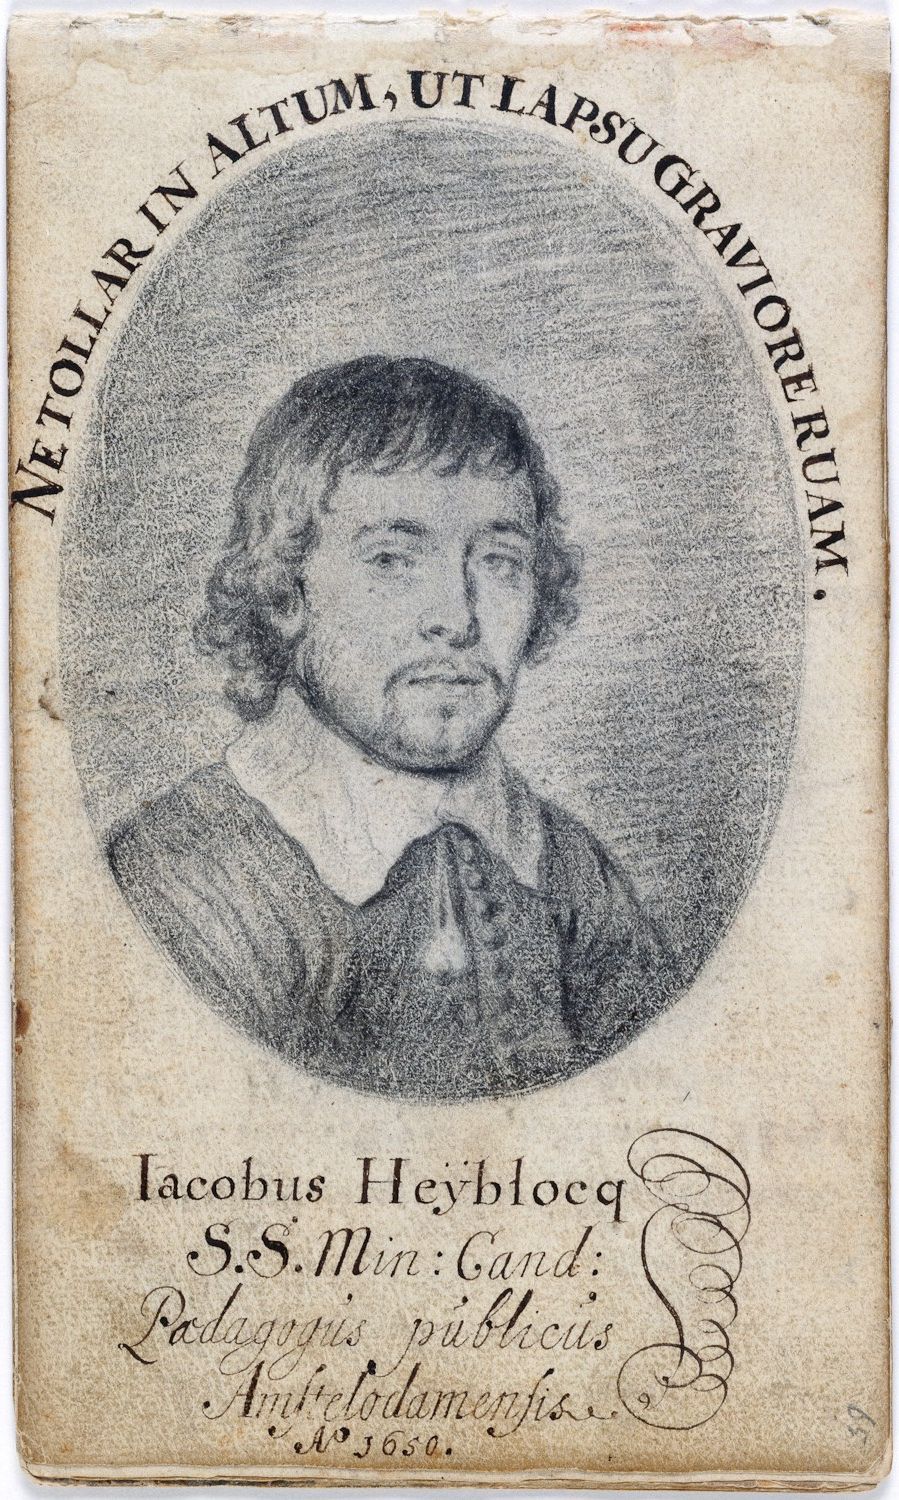 NE TOLLAR IN ALTUM, UT LAPSU GRAVIORE RUAM.
Iacobus Heÿblocq
S.S. Min: Cand:
Pædagogus publicus
Amſtelodamenſis
Aº 1650.
59